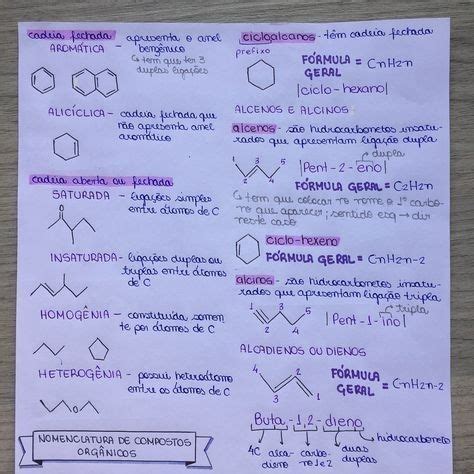 cadeia fechada - apresenta o anel
AROMÁTICA benzênico
↳ tem que ter 3
duplas ligações
ALICÍCLICA - cadeia fechada que
não apresenta anel
aromático
cadeia aberta ou fechada
SATURADA - ligações simples
entre átomos de C
INSATURADA - ligações duplas ou
triplas entre átomos
de C
HOMOGÊNIA - constituída somen
te por átomos de C
HETEROGÊNIA - possui heteroátomo
entre os átomos de C
NOMENCLATURA DE COMPOSTOS
ORGÂNICOS
cicloalcanos - têm cadeia fechada
prefixo
FÓRMULA = CnH2n
GERAL
|ciclo-hexano|
ALCENOS E ALCINOS
alcenos - são hidrocarbonetos insatu-
rados que apresentam ligação dupla
dupla
1 2 3 4 5
|Pent-2-eno|
FÓRMULA GERAL = C2H2n
↳ tem que colocar no nome o 1º carbo-
no que aparecer; sentido esq → dir
neste caso
ciclo-hexeno
FÓRMULA GERAL = CnH2n-2
alcinos - são hidrocarbonetos insatu-
rados que apresentam ligação tripla
tripla
1 2 3 4 5
|Pent-1-ino|
ALCADIENOS OU DIENOS
4 3 2 1
FÓRMULA = CnH2n-2
GERAL
Buta-1,2-dieno
hidrocarboneto
4C alca- carbo- duas
dieno no 1 e 2 duplas